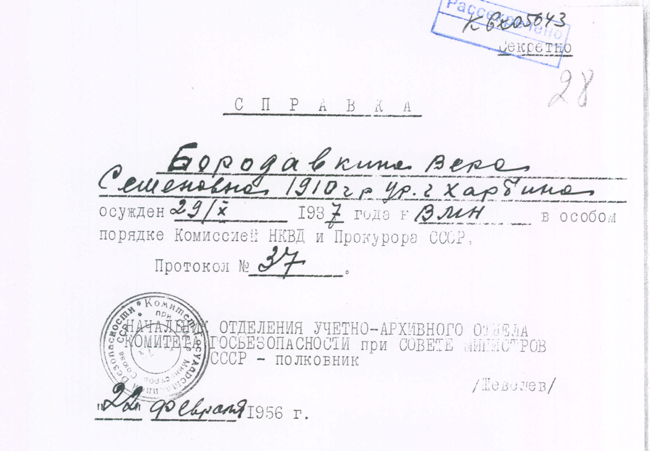 Рассекречено
К Вх 05643
Секретно
28
СПРАВКА
Бородавкина Вера
Семеновна 1910 г р ур. г Харбина
осужден 29/IX 1937 года к ВМН в особом
порядке Комиссией НКВД и Прокурора СССР.
Протокол № 37.
НАЧАЛЬНИК ОТДЕЛЕНИЯ УЧЕТНО-АРХИВНОГО ОТДЕЛА
КОМИТЕТА ГОСБЕЗОПАСНОСТИ при СОВЕТЕ МИНИСТРОВ
СССР - полковник
/Шевелев/
"22" февраля 1956 г.
Комитет Государственной Безопасности
при
Министров Союза ССР